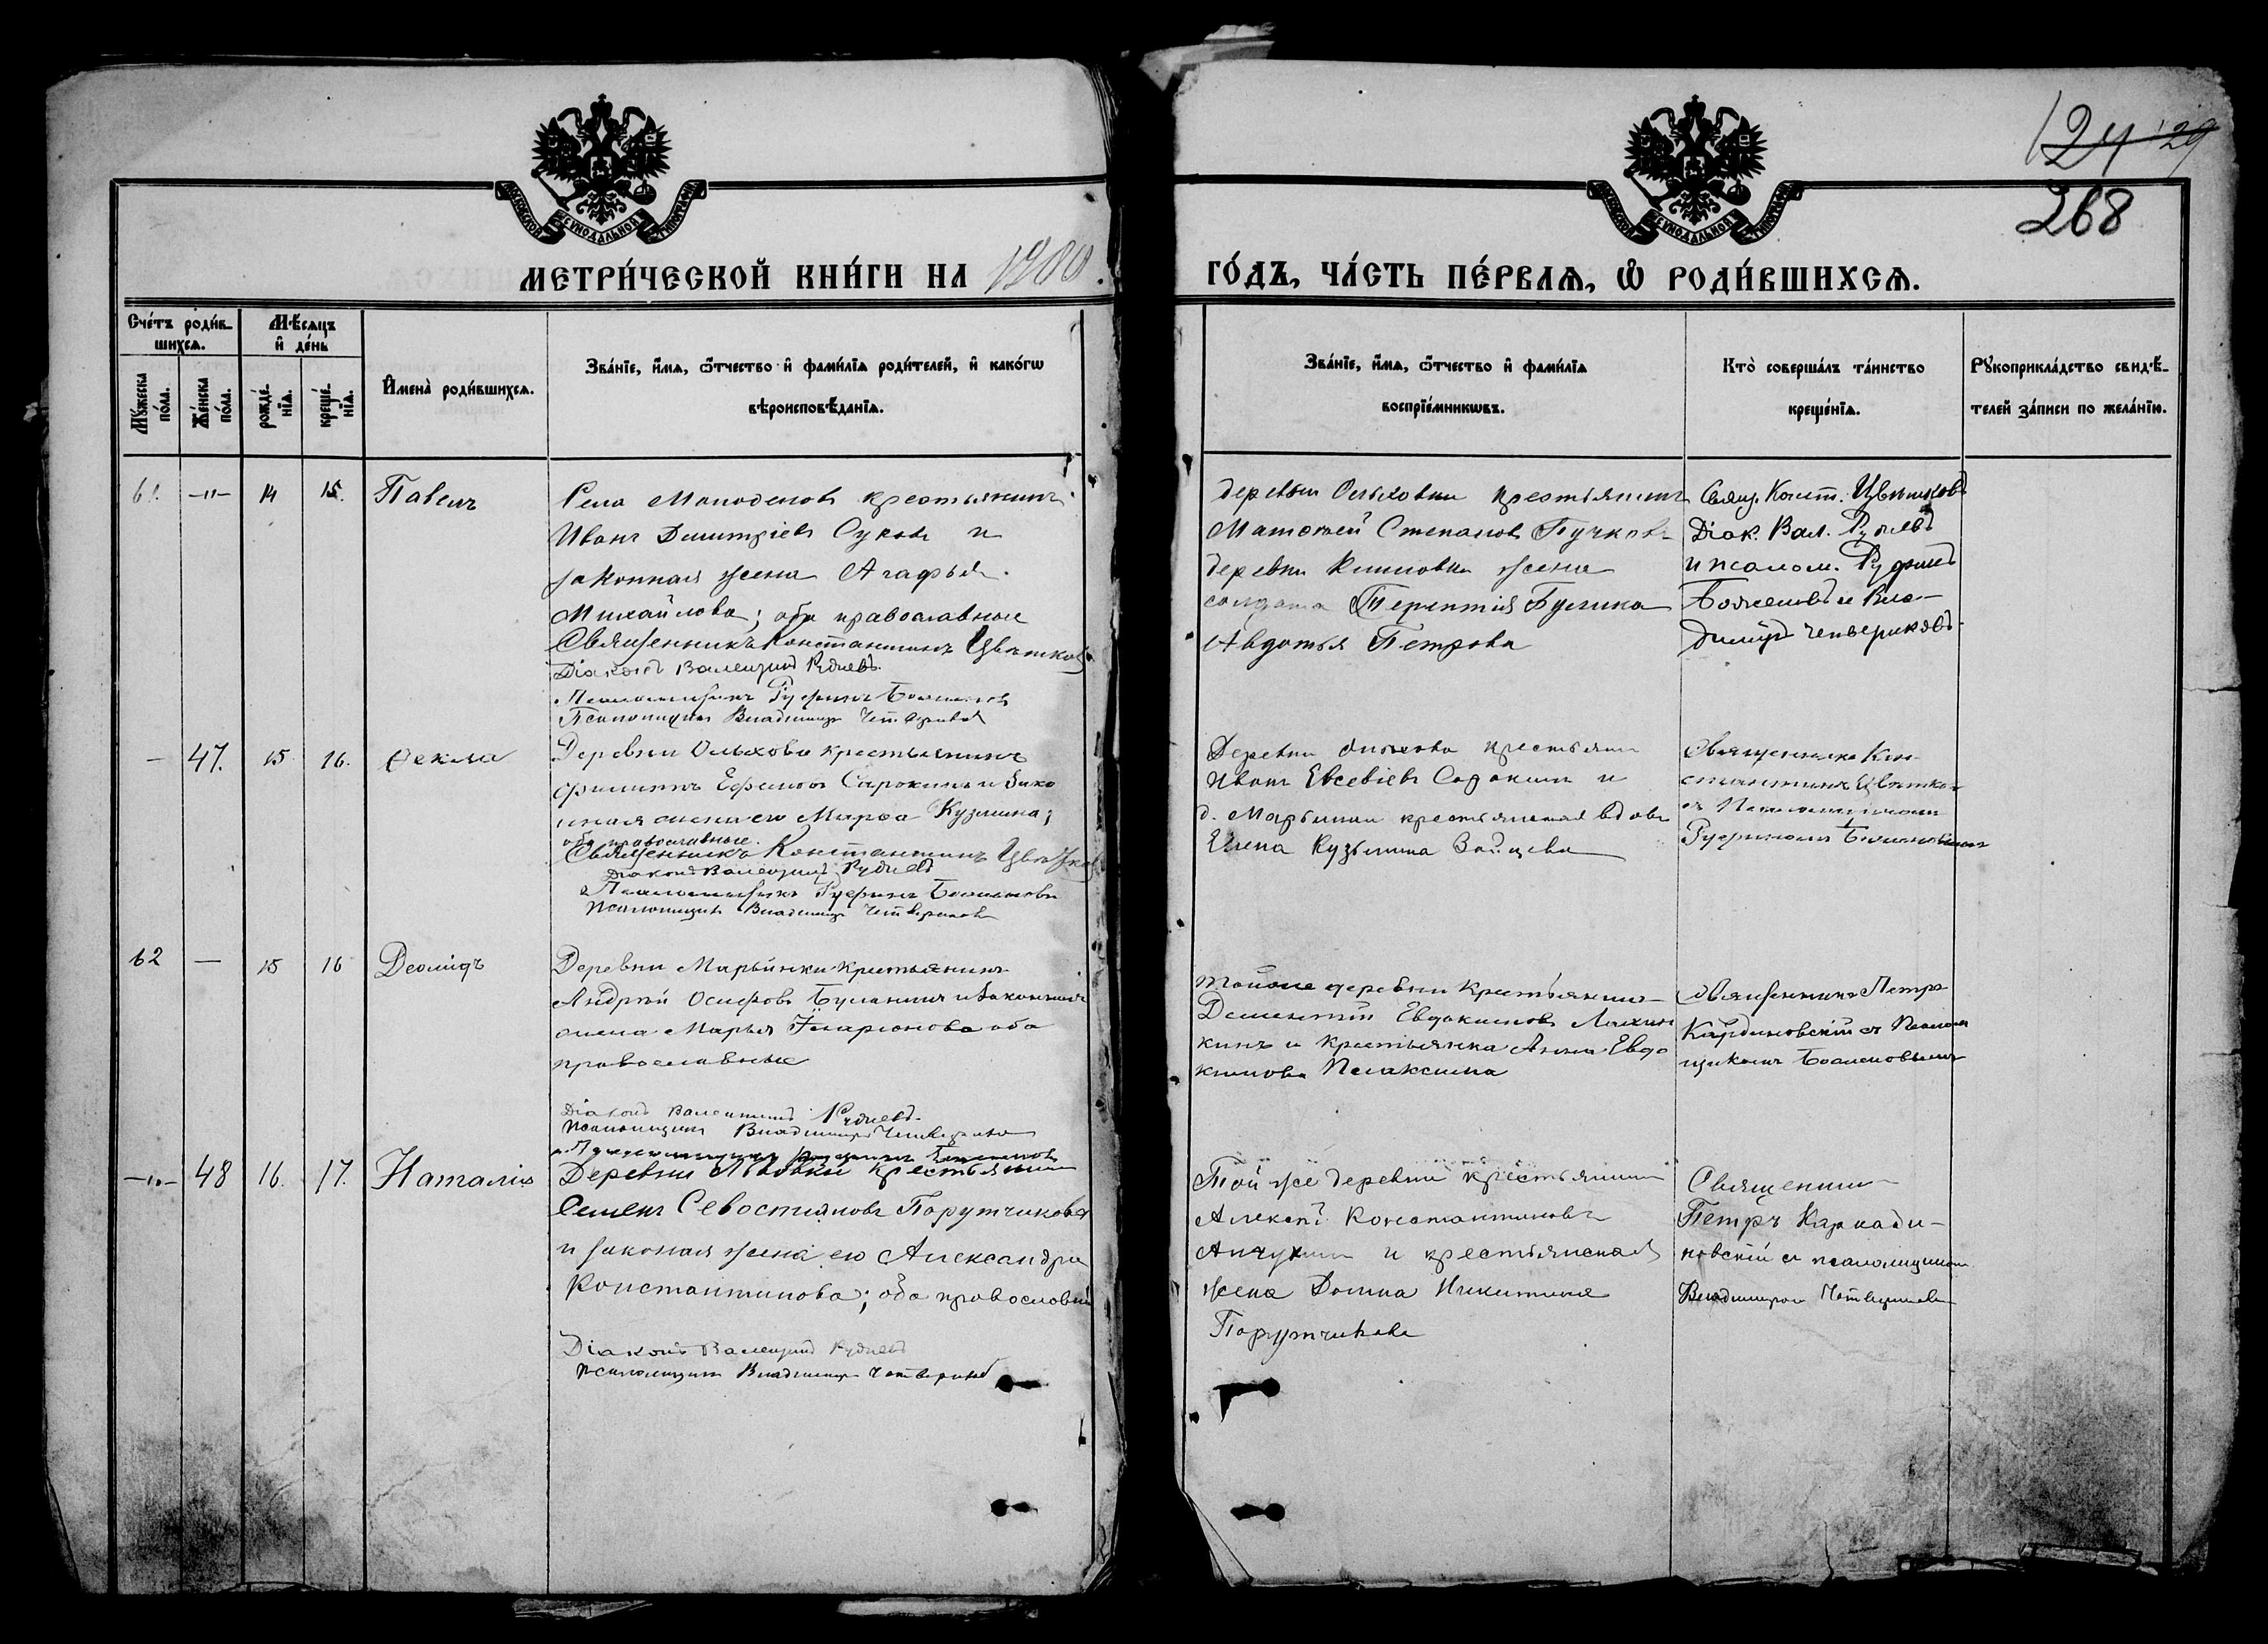 124 129
268
МОСКОВСКОЙ СѴНОДАЛЬНОЙ ТИПОГРАФІИ
МОСКОВСКОЙ СѴНОДАЛЬНОЙ ТИПОГРАФІИ
МЕТРИ́ЧЕСКОЙ КНИ́ГИ НА 1900
ГО́ДЪ, ЧА́СТЬ ПЕ́РВАѦ, Ѡ҆ РОДИ́ВШИХСѦ.
Сче́тъ роди́в-
шихсѧ.
Мѣ́сѧцъ
и҆ де́нь
Мꙋ́жеска
по́ла.
Же́нска
по́ла.
рожде́-
нїѧ.
креще́-
нїѧ.
И҆мена̀ роди́вшихсѧ.
Зва́нїе, и҆́мѧ, ѻ҆́тчество и҆ фами́лїѧ роди́телей, и҆ како́гѡ
вѣроисповѣ́данїѧ.
Зва́нїе, и҆́мѧ, ѻ҆́тчество и҆ фами́лїѧ
воспрїе́мникѡвъ.
Кто̀ соверша́лъ та́инство
креще́нїѧ.
Рꙋкоприкла́дство свидѣ́-
телей за́писи по жела́нїю.
61. -"- 14 15. Павелъ
Села Молоденокъ крестьянинъ
Иванъ Димитріевъ Суковъ и
законная жена Агафья
Михайлова; оба православные
Священникъ Константинъ Цвѣтковъ
Діаконъ Валенцинъ Рудневъ.
Псаломщикъ Руфинъ Боженовъ
Псаломщикъ Владиміръ Четвериковъ
деревни Ольховки крестьянинъ
Матѳей Степановъ Пучковъ
деревни жена
солдата Терентія
Авдотья Петрова
Свящ. Конст. Цвѣтковъ
Діак. Вал. Рудневъ
и псалом. Руфинъ
Боженовъ и Вла-
диміръ Четвериковъ
— 47. 15 16. Ѳекла
Деревни Ольхова крестьянинъ
Филиппъ Ефимовъ Сорокинъ и зако
нная жена его Марѳа Кузмина;
оба православные.
Священникъ Константинъ Цвѣтковъ
Діаконъ Валенцинъ Рудневъ
Псаломщикъ Руфинъ Боженовъ
Псаломщикъ Владиміръ Четвериковъ
Деревни крестьянин
Иванъ Евсевіевъ Сорокинъ и
д. Марьинки крестьянская вдова
Елена Кузьмина Зайцева
Священникъ Кон-
стантинъ Цвѣтков
съ Псаломщикомъ
Руфиномъ Боженовымъ
62 — 15 16 Деомидъ
Деревни Марьинки крестьянинъ
Андрей Осиповъ и законная
жена Марья Иларіонова оба
православные
Діаконъ Валентинъ Рудневъ.
Псаломщикъ Владиміръ Четвериковъ
тойже деревни крестьянинъ
Дементій Евдокимовъ
кинъ и крестьянка Анна Евдо
кимова
Священникъ Петръ
съ Псалом
щикомъ Боженовымъ
-"- 48 16. 17. Наталія
Деревни Львовки крестьянин
Семенъ Севостьяновъ Порутчиковъ
и законая жена его Александра
Константинова; оба православны
Діаконъ Валенцинъ Рудневъ
Псаломщикъ Владиміръ Четвериковъ
Той же деревни крестьянин
Алексѣй Константиновъ
и крестьянская
жена Домна Никитина
Порутчикова
Священник
Петръ Карнади-
новскій съ псаломщиком
Владиміромъ Четвериковым